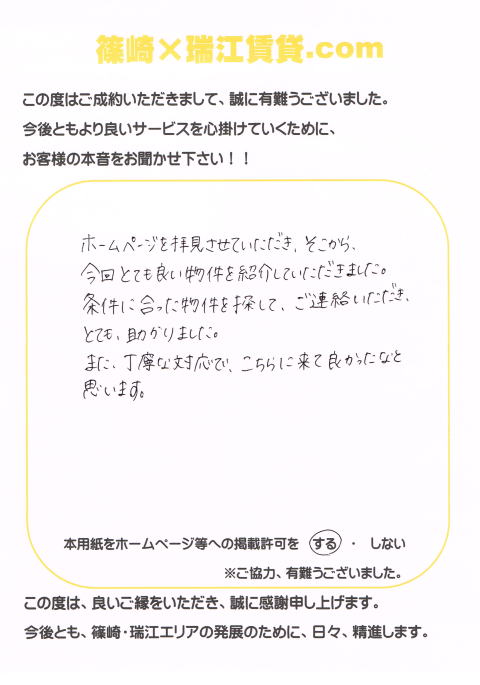 篠崎×瑞江賃貸.com
この度はご成約いただきまして、誠に有難うございました。
今後ともより良いサービスを心掛けていくために、
お客様の本音をお聞かせ下さい！！
ホームページを拝見させていただき、そこから、
今回とても良い物件を紹介していただきました。
条件に合った物件を探して、ご連絡いただき、
とても、助かりました。
また、丁寧な対応で、こちらに来て良かったなと
思います。
本用紙をホームページ等への掲載許可を する ・ しない
※ご協力、有難うございました。
この度は、良いご縁をいただき、誠に感謝申し上げます。
今後とも、篠崎・瑞江エリアの発展のために、日々、精進します。